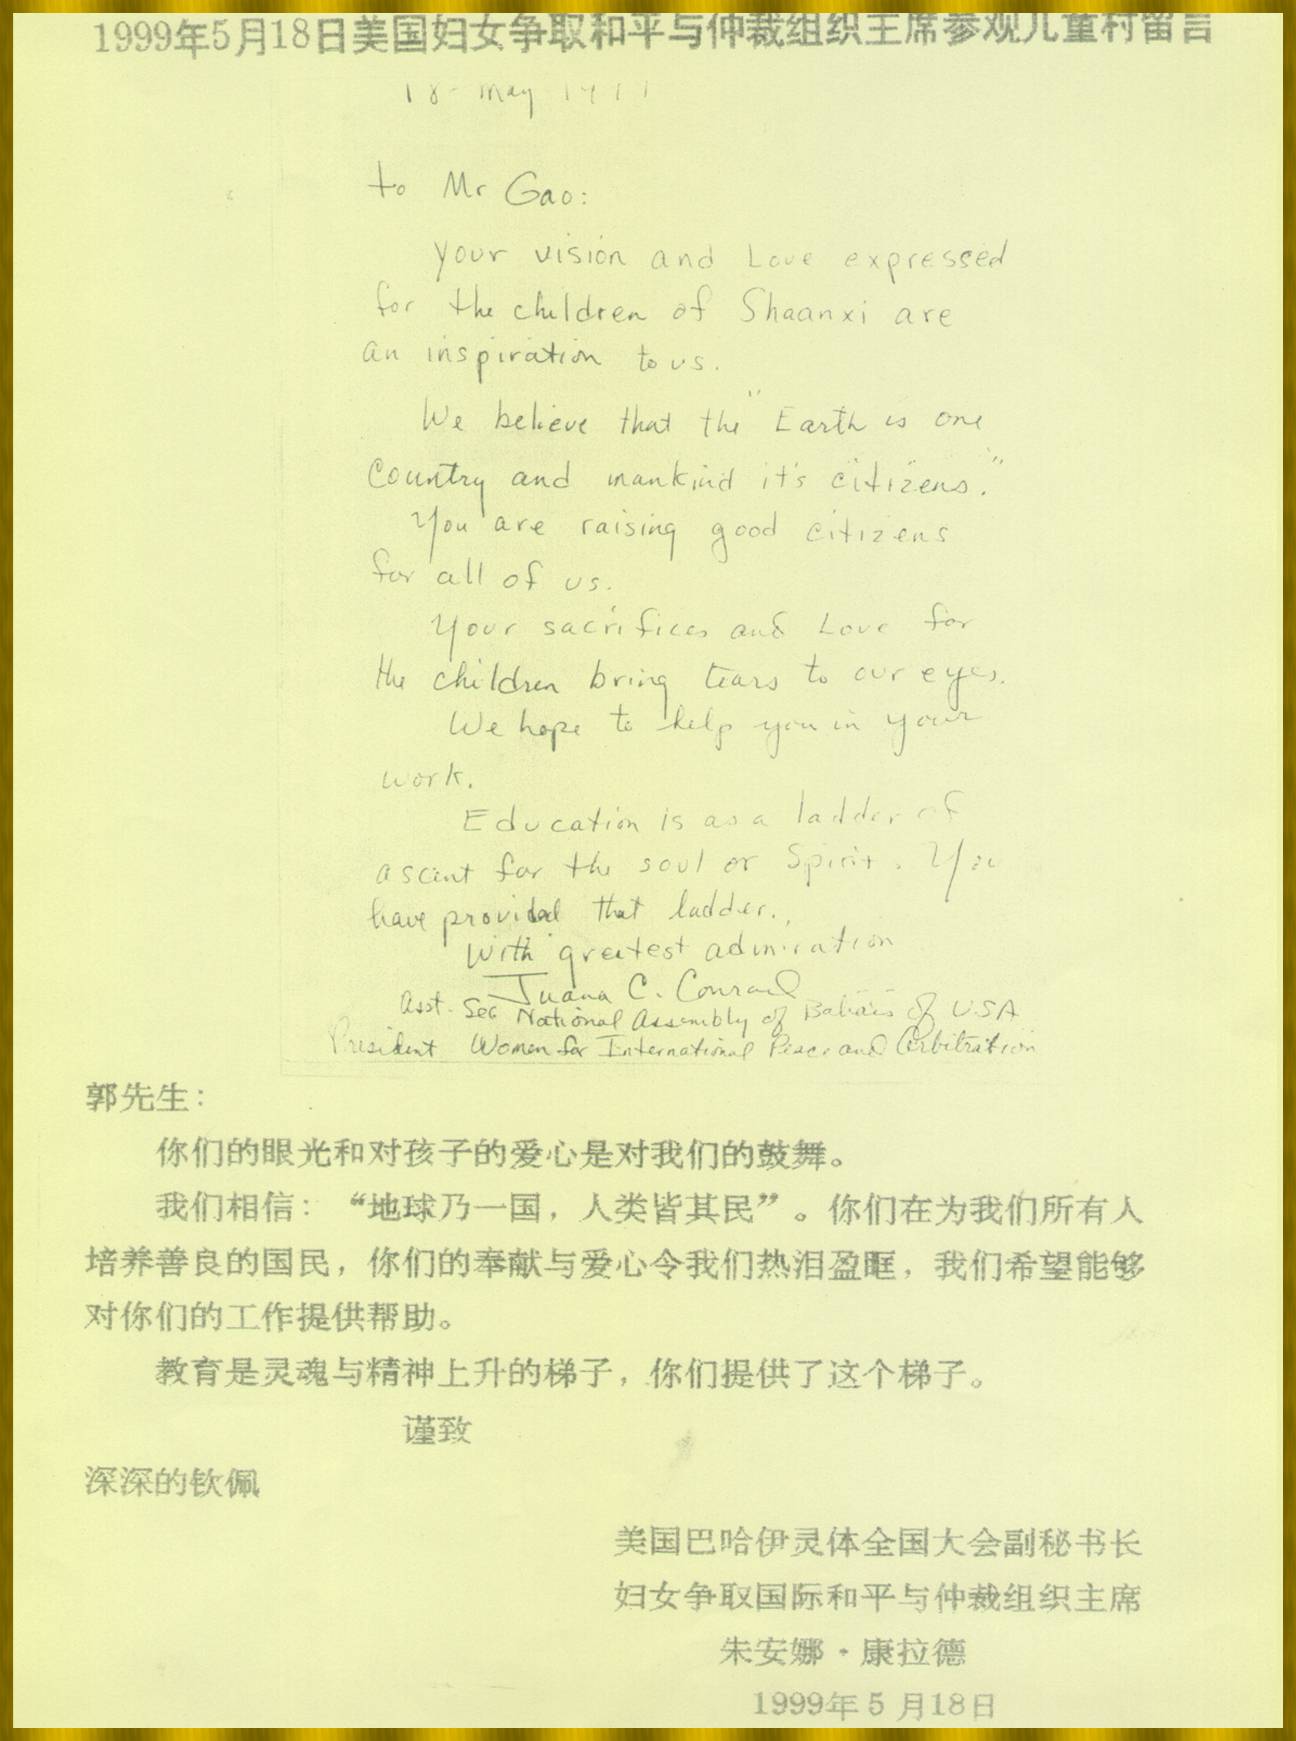 1999年5月18日美国妇女争取和平与仲裁组织主席参观儿童村留言
18 - May 1999
to Mr Gao:
Your vision and Love expressed
for the children of Shaanxi are
an inspiration to us.
We believe that the "Earth is one
Country and mankind it's citizens."
You are raising good citizens
for all of us.
Your sacrifices and Love for
the children bring tears to our eyes.
We hope to help you in your
work.
Education is as a ladder of
ascent for the soul or Spirit. You
have provided that ladder.
With greatest admiration
Juana C. Conrad
Asst. Sec National Assembly of Bahá'ís of USA
President Women for International Peace and Arbitration
郭先生：
你们的眼光和对孩子的爱心是对我们的鼓舞。
我们相信：“地球乃一国，人类皆其民”。你们在为我们所有人
培养善良的国民，你们的奉献与爱心令我们热泪盈眶，我们希望能够
对你们的工作提供帮助。
教育是灵魂与精神上升的梯子，你们提供了这个梯子。
谨致
深深的钦佩
美国巴哈伊灵体全国大会副秘书长
妇女争取国际和平与仲裁组织主席
朱安娜·康拉德
1999年5月18日